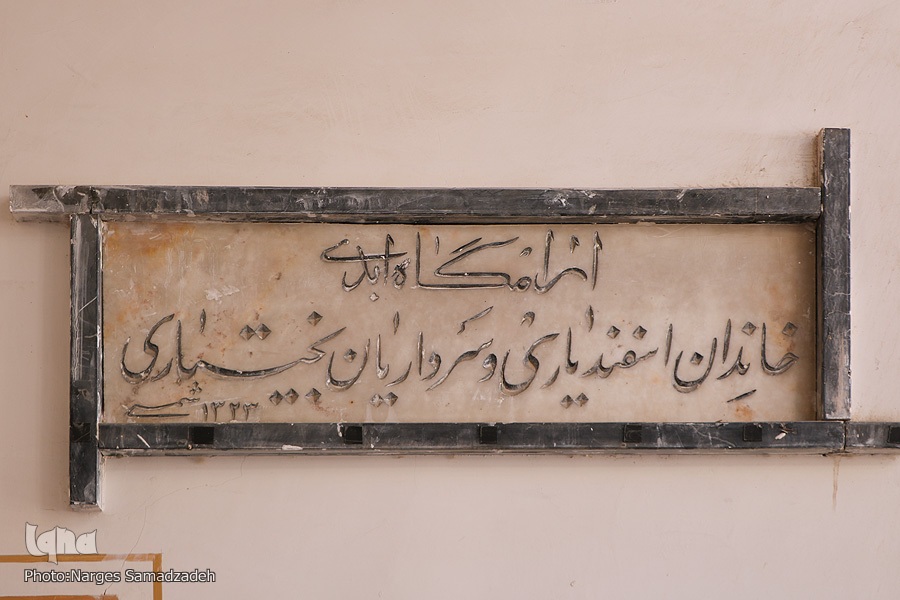 آرامگاه ابدی
خاندان اسفندیاری و سرداریان بختیاری
۱۳۲۳ شمسی
Iqna
Photo:Narges Samadzadeh